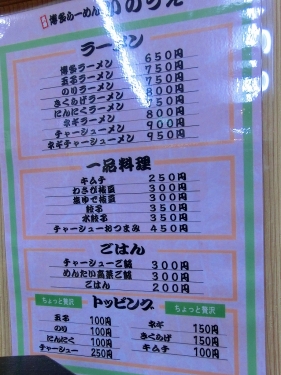 博多らーめん いのうえ
ラーメン
博多ラーメン 650円
玉子ラーメン 750円
のりラーメン 750円
きくらげラーメン 800円
にんにくラーメン 750円
ネギラーメン 800円
チャーシューメン 900円
ネギチャーシューメン 950円
一品料理
キムチ 250円
わさび枝豆 300円
塩ゆで枝豆 300円
餃子 350円
水餃子 350円
チャーシューおつまみ 450円
ごはん
チャーシューご飯 300円
めんたい高菜ご飯 300円
ごはん 200円
ちょっと贅沢 トッピング ちょっと贅沢
玉子 100円 ネギ 150円
のり 100円 きくらげ 150円
にんにく 100円 キムチ 100円
チャーシュー 250円